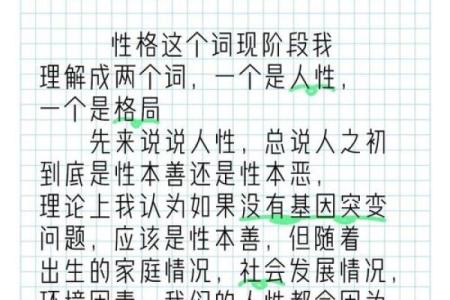 性格这个词现阶段我
理解成两个词，一个是人性，
一个是格局
先来说说人性，总说人之初
到底是性本善还是性本恶，
理论上我认为如果没有基因突变
问题，应该是性本善，但随着
出生的家庭情况，社会发展情况，
环境因素，我们的人性都会因为